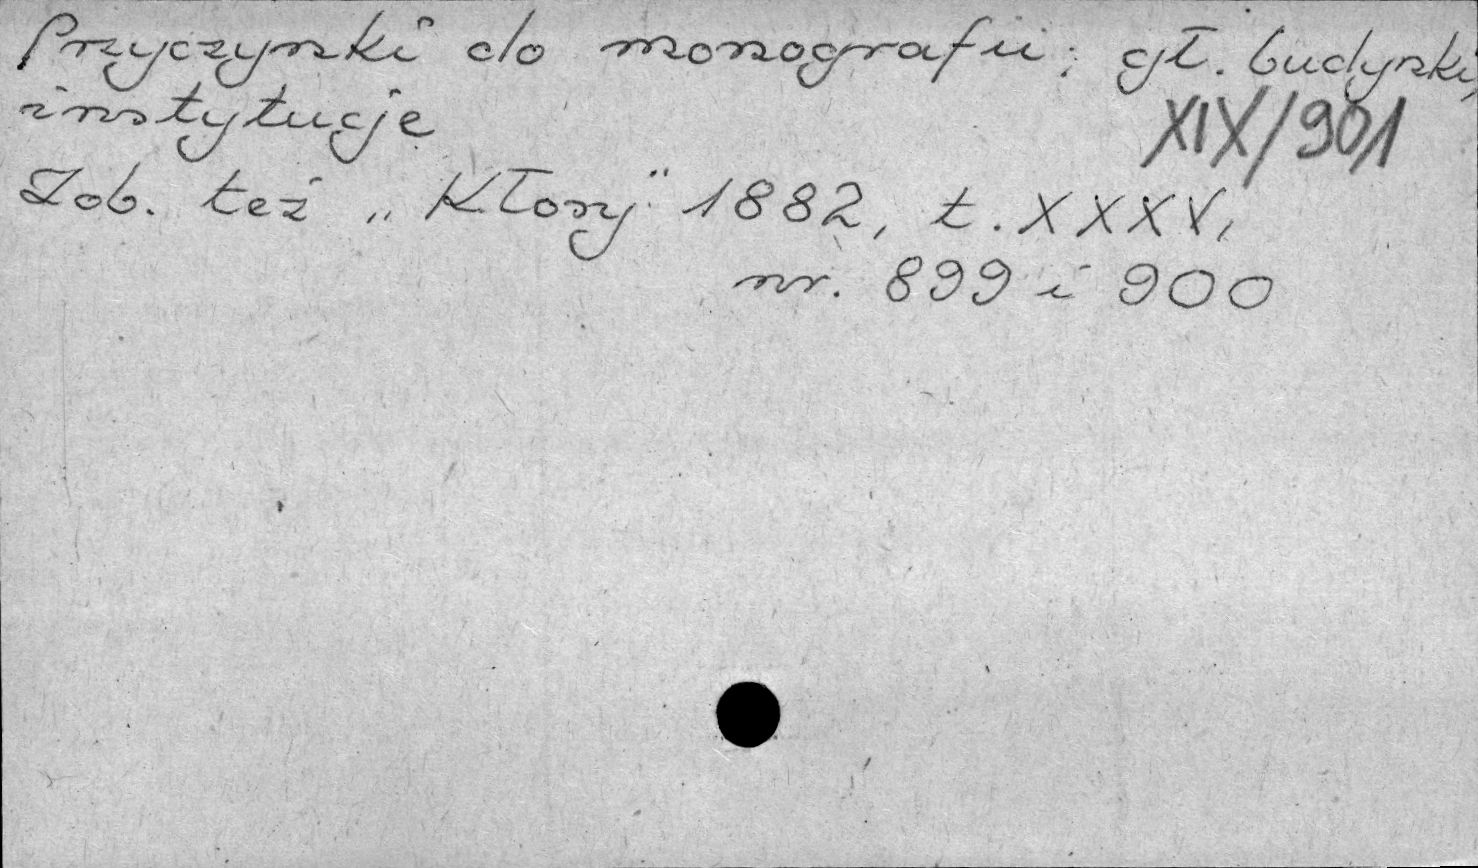 Przyczynki do monografii; gł. budynki,
instytucje
XIX/901
Zob. też „Kłosy" 1882, t. XXXV,
nr. 899 i 900